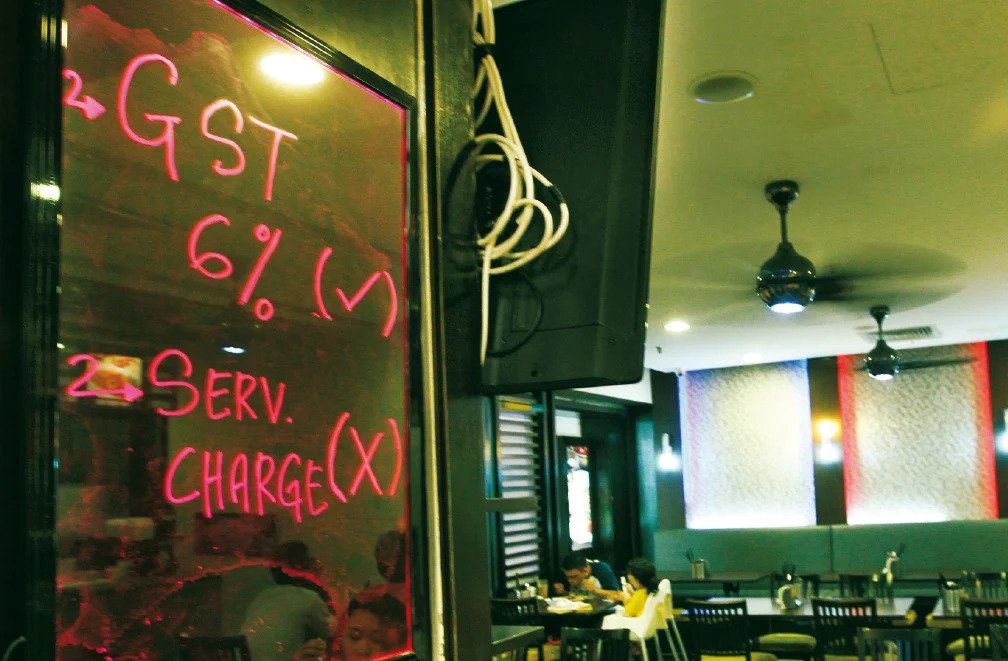 2→ GST
6% (✓)
2→ SERV.
CHARGE (X)